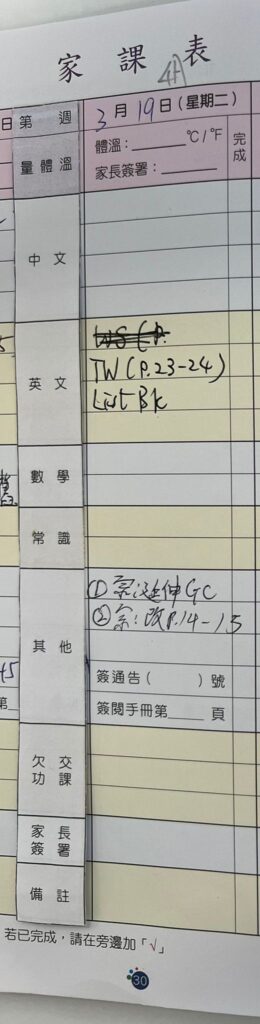 家課表
4A
日 第 週 3月19日(星期二)
量體溫 體溫：______°C/°F 完成
家長簽署：______
中文
英文
TW (P.23-24)
List Bk
數學
常識
其他
① 延伸GC
② 改P.14-15
45
簽通告( )號
第
簽閱手冊第____頁
欠交功課
家長簽署
備註
若已完成，請在旁邊加「√」
30